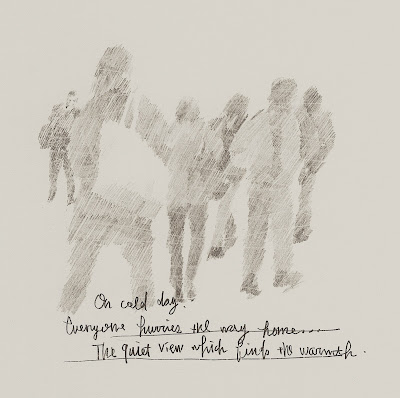 On cold day.
Everyone hurries the way home....
The quiet view which finds the warmth.